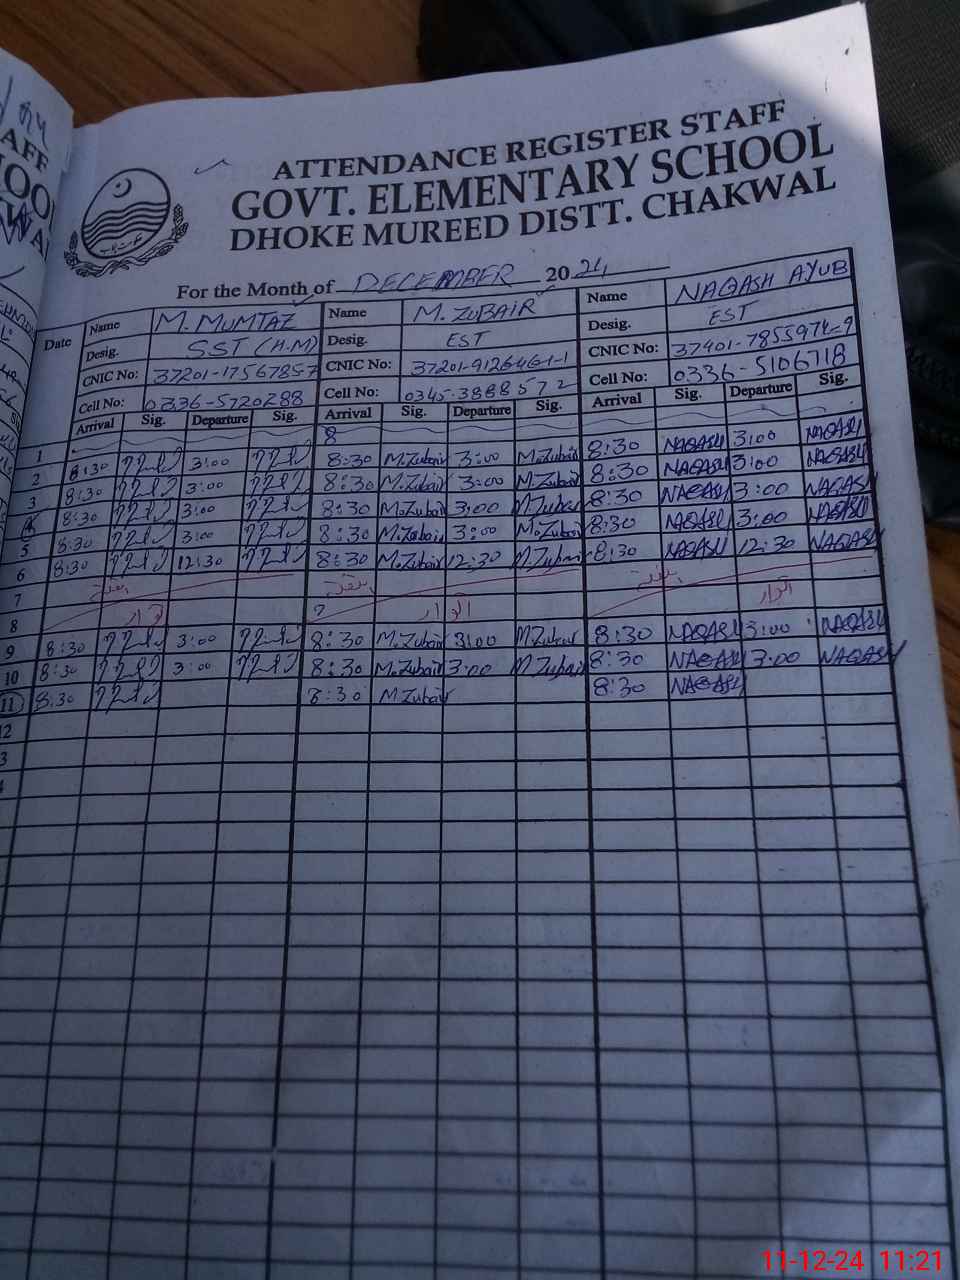 ATTENDANCE REGISTER STAFF
GOVT. ELEMENTARY SCHOOL
DHOKE MUREED DISTT. CHAKWAL
For the Month of DECEMBER 2024
Date Name M. MUMTAZ Name M. ZUBAIR Name NAQASH AYUB
Desig. SST (H.M) Desig. EST Desig. EST
CNIC No: 37201-1756785-7 CNIC No: 37201-9126461-1 CNIC No: 37401-7855974-9
Cell No: 0336-5720288 Cell No: 0345-3868572 Cell No: 0336-5106718
Arrival Sig. Departure Sig. Arrival Sig. Departure Sig. Arrival Sig. Departure Sig.
1 8
2 8:30 3:00 8:30 M.Zubair 3:00 M.Zubair 8:30 NAQASH 3:00 NAQASH
3 8:30 3:00 8:30 M.Zubair 3:00 M.Zubair 8:30 NAQASH 3:00 NAQASH
4 8:30 3:00 8:30 M.Zubair 3:00 M.Zubair 8:30 NAQASH 3:00 NAQASH
5 8:30 3:00 8:30 M.Zubair 3:00 M.Zubair 8:30 NAQASH 3:00 NAQASH
6 8:30 12:30 8:30 M.Zubair 12:30 M.Zubair 8:30 NAQASH 12:30 NAQASH
7 ہفتہ ہفتہ ہفتہ
8 اتوار اتوار اتوار
9 8:30 3:00 8:30 M.Zubair 3:00 M.Zubair 8:30 NAQASH 3:00 NAQASH
10 8:30 3:00 8:30 M.Zubair 3:00 M.Zubair 8:30 NAQASH 3:00 NAQASH
11 8:30 8:30 M.Zubair 8:30 NAQASH
12
3
4
11-12-24 11:21